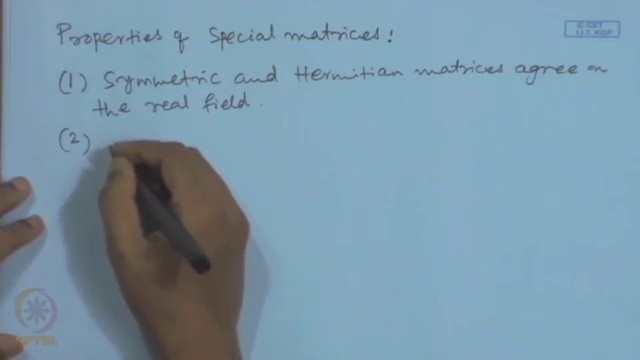 Properties of Special matrices:
© CET
I.I.T. KGP
(1) Symmetric and Hermitian matrices agree on
the real field.
(2)
NPTEL